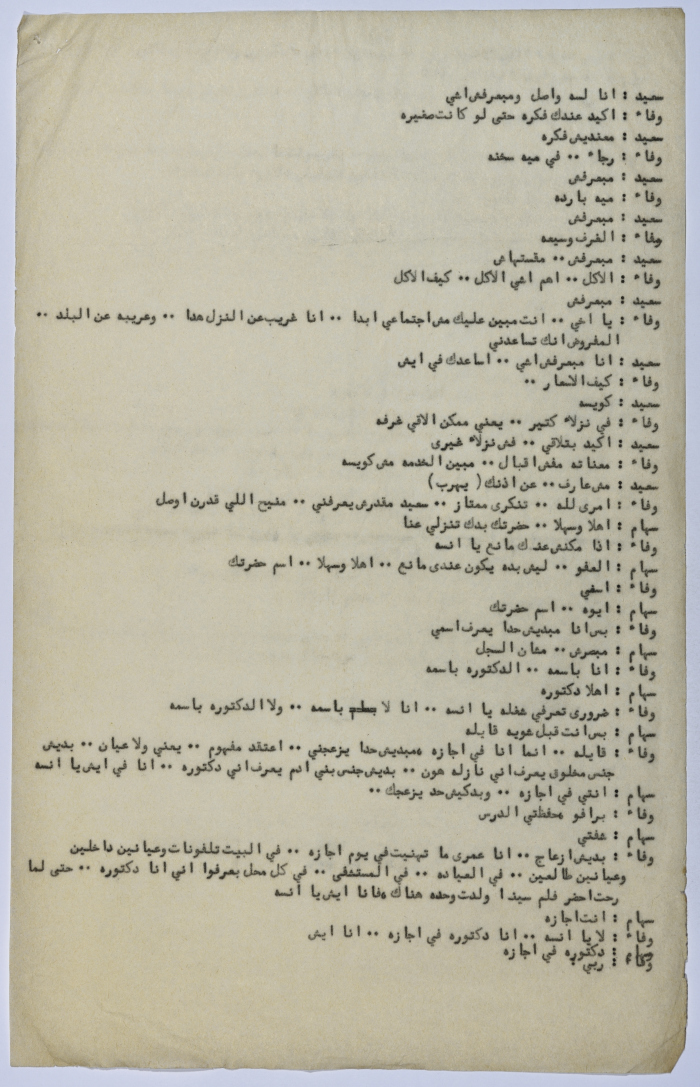 سعيد : انا لسه واصل ومبعرفش اشي
وفاء : اكيد عندك فكره حتى لو كانت صغيره
سعيد : معنديش فكره
وفاء : رجاء .. في ميه سخنه
سعيد : مبعرفش
وفاء : ميه بارده
سعيد : مبعرفش
وفاء : الغرف وسيعه
سعيد : مبعرفش .. مقستهاش
وفاء : الاكل .. اهم اشي الاكل .. كيف الاكل
سعيد : مبعرفش
وفاء : يا اخي .. انت مبين عليك مش اجتماعي ابدا .. انا غريب عن النزل هدا .. وغريبه عن البلد ..
المفروض انك تساعدني
سعيد : انا مبعرفش اشي .. اساعدك في ايش
وفاء : كيف الاسعار ..
سعيد : كويسه
وفاء : في نزلاء كتير .. يعني ممكن الاقي غرفه
سعيد : اكيد بتلاقي .. فش نزلاء غيرى
وفاء : معناته مفش اقبال .. مبين الخدمه مش كويسه
سعيد : مش عارف .. عن اذنك ( يهرب )
وفاء : امرى لله .. تنكرى ممتاز .. سعيد مقدرش يعرفني .. منيح اللي قدرت اوصل
سهام : اهلا وسهلا .. حضرتك بدك تنزلي عنا
وفاء : اذا مكنش عندك مانع يا انسه
سهام : العفو .. ليش بده يكون عندى مانع .. اهلا وسهلا .. اسم حضرتك
وفاء : اسمي
سهام : ايوه .. اسم حضرتك
وفاء : بس انا مبديش حدا يعرف اسمي
سهام : مبصرش .. مشان السجل
وفاء : انا باسمه .. الدكتوره باسمه
سهام : اهلا دكتوره
وفاء : ضرورى تعرفي شغله يا انسه .. انا لا باسمه .. ولا الدكتوره باسمه
سهام : بس انت قبل شويه قايله
وفاء : قايله .. انما انا في اجازه ومبديش حدا يزعجني .. اعتقد مفهوم .. يعني ولا عيان .. بديش
جنس مخلوق يعرف اني نازله هون .. بديش جنس بني ادم يعرف اني دكتوره .. انا في ايش يا انسه
سهام : انتي في اجازه .. وبدكيش حد يزعجك ..
وفاء : برافو محفظتي الدرس
سهام : شفتي
وفاء : بديش ازعاج .. انا عمرى ما تهنيت في يوم اجازه .. في البيت تلفونات وعيانين داخلين
وعيانين طالعين .. في العياده .. في المستشفى .. في كل محل بعرفوا اني انا دكتوره .. حتى لما
رحت احضر فلم سينما ولدت وحده هناك فانا ايش يا انسه
سهام : انت اجازه
وفاء : لا يا انسه .. انا دكتوره في اجازه .. انا ايش
سهام : دكتوره في اجازه
وفاء : ربي :